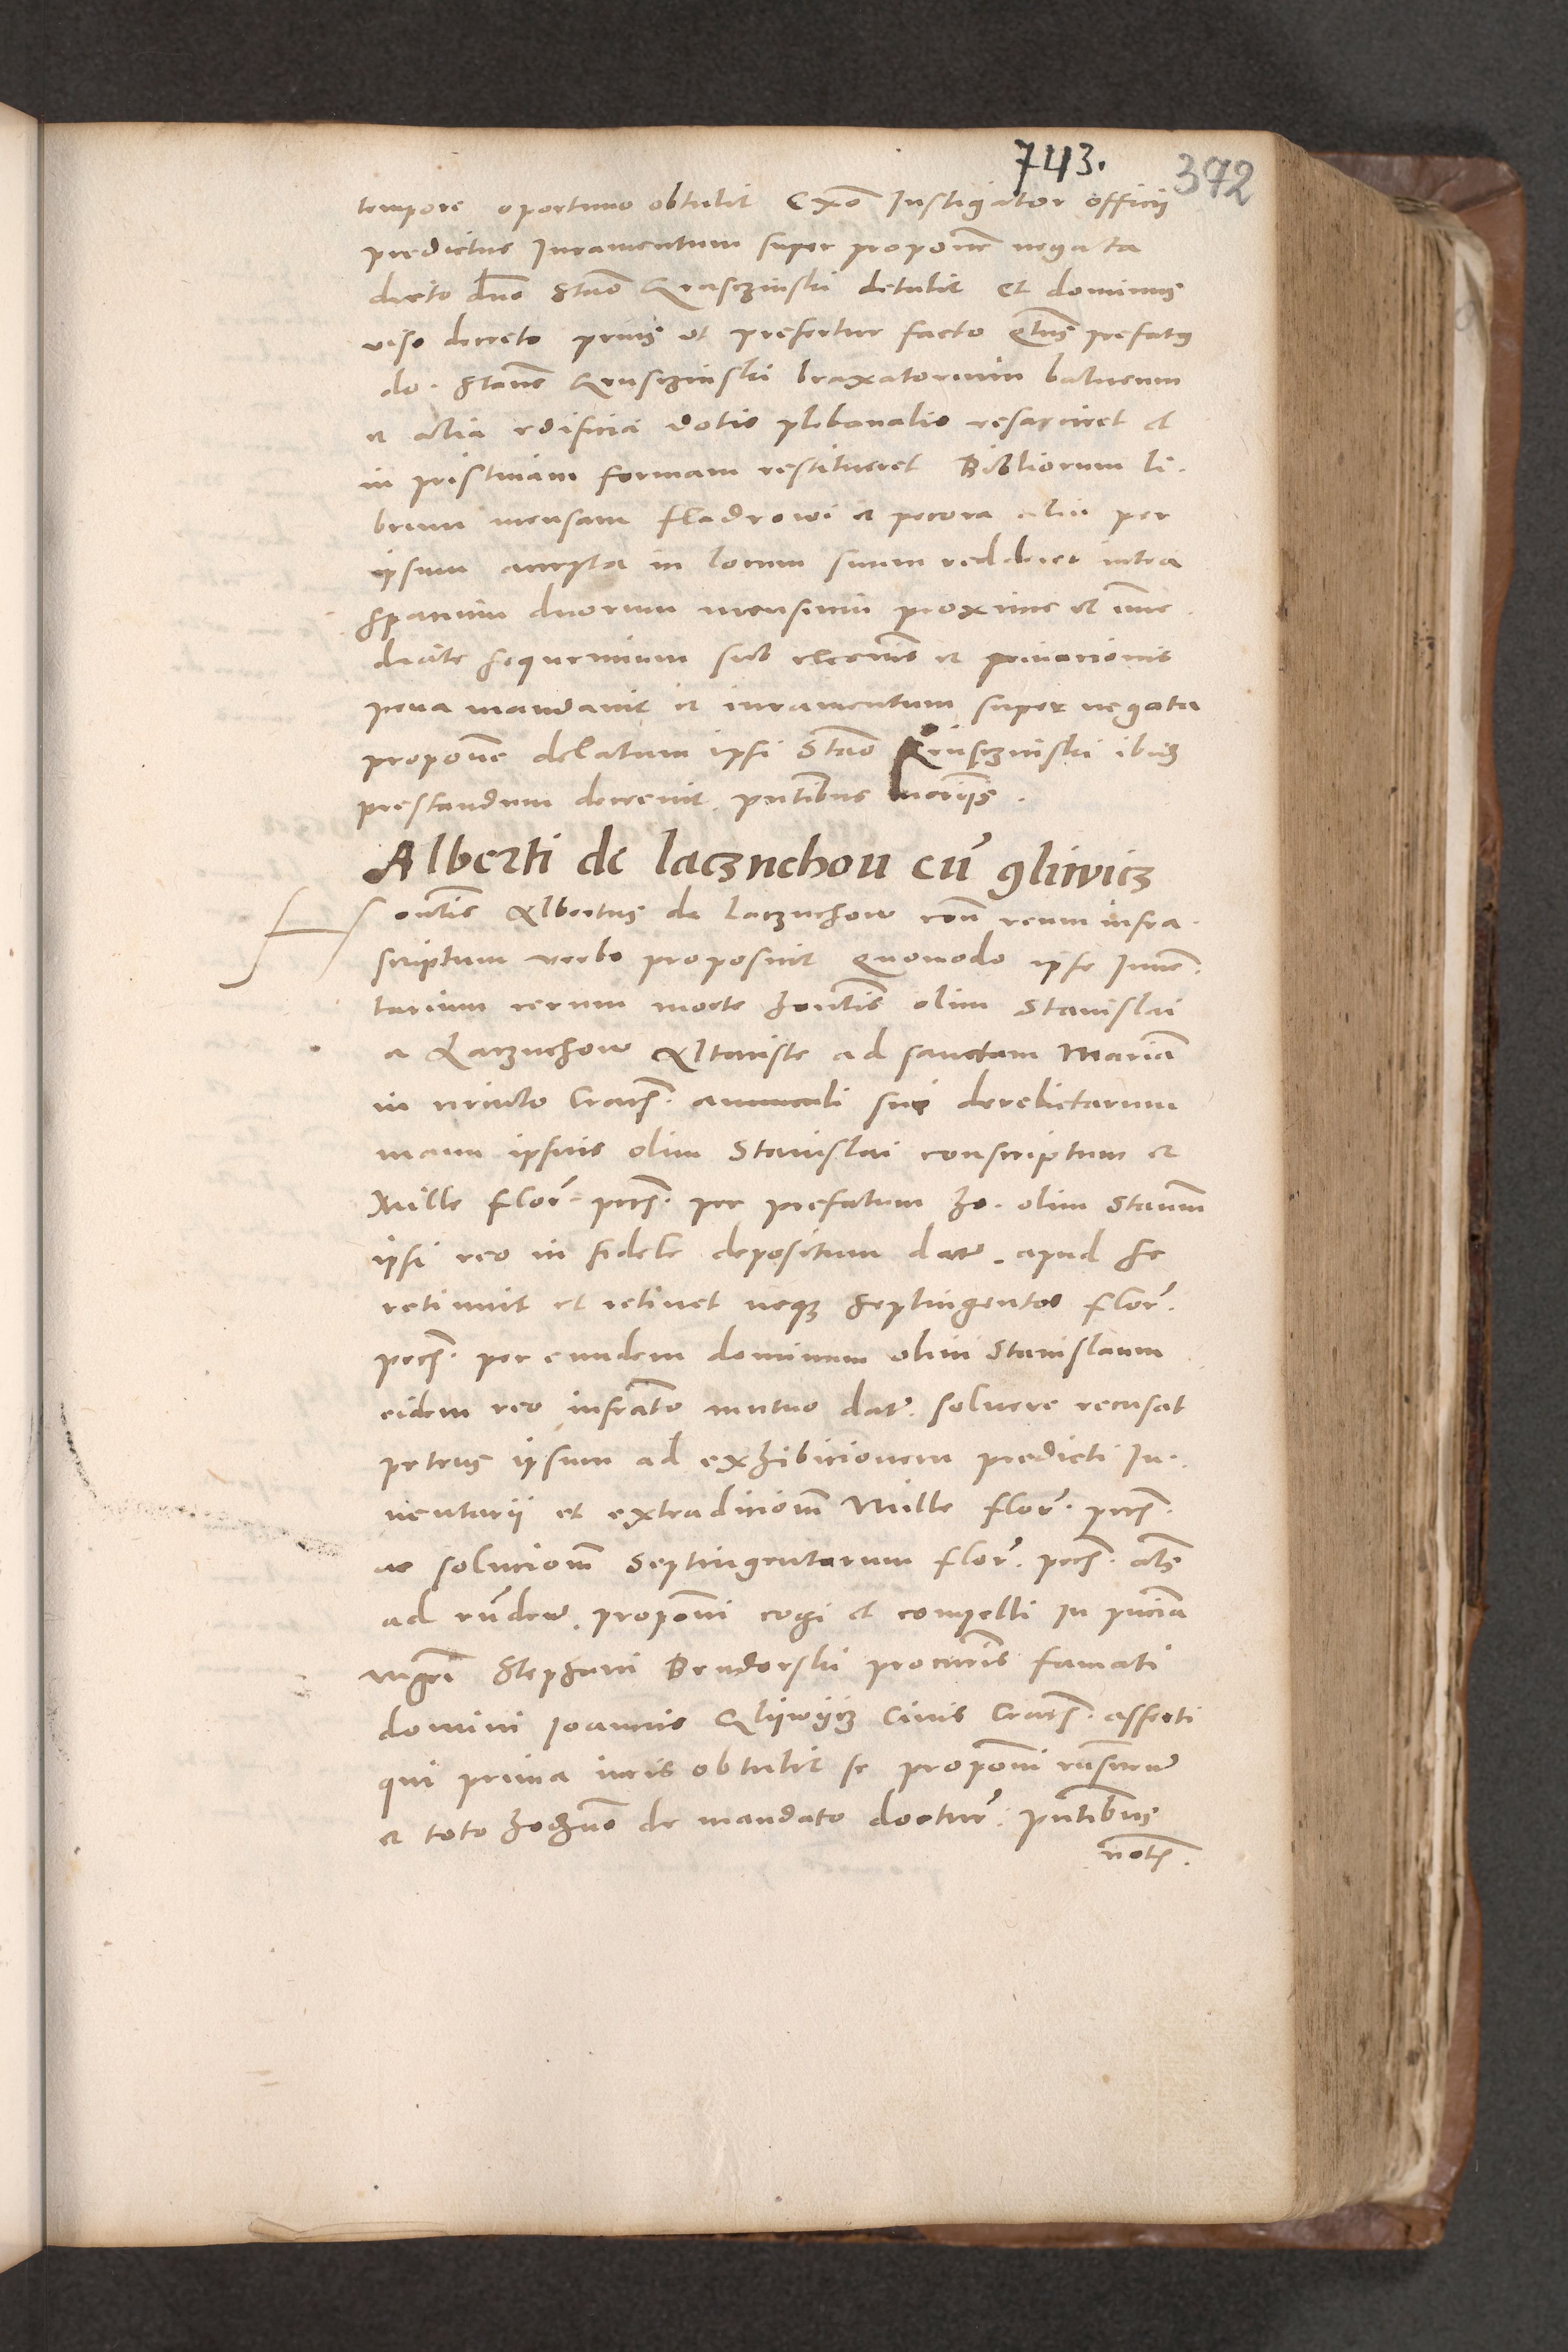 743. 372
tempore oportuno obtulit Exō Instigator officij
predictus Iuramentum super proponē negata
dicto dno Stāo Kruszinski detulit et dominus
viso decreto prius ut prefertur facto qtus prefatus
do. Stanē Kruszinski braxatorium balneum
et alia edificia dotis plebanalis resarciret et
in pristinam formam restitueret Bibliorum li-
brum mensam fladrowi et pecora alia per
ipsum accepta in locum suum redderet intra
spacium duorum mensium proxime et imme-
diate sequentium sub excōnis et privacionis
pena mandavit et iuramentum super negata
proponē delatum ipsi Stāo Kruszinski ibus
prestandum decrevit pntibus
Alberti de laczuchou cū gliwicz
Honestis Albertus de Laczuchow con reum infra-
scriptum verbo proposuit Quomodo ipse Inven-
tarium rerum morte honestis olim Stanislai
a Laczuchow Altariste ad sanctam Mariā
in circulo Cracs. avunculi sui derelictarum
manu ipsius olim Stanislai conscriptum et
Mille flor. pecs. per prefatum ho. olim Stanm
ipsi reo in fidele depositum dat. apud se
retinuit et retinet neq3 septingentos flor.
pecs. per eundem dominum olim Stanislaum
eidem reo infrato mutuo dat. solvere recusat
petens ipsum ad exhibicionem predicti In-
ventarii et extradicionē Mille flor. pecs.
ac solucionē Septingentarum flor. pecs. als
ad rūdew. proponi cogi et compelli In pncia
mgri Stephani Bendorski procuris famati
domini Ioannis Glijwijcz Civis Cracs. asserti
qui prima iuris obtulit se proponi rūsurum
et toto de mandato doctur. pntibus
nots.